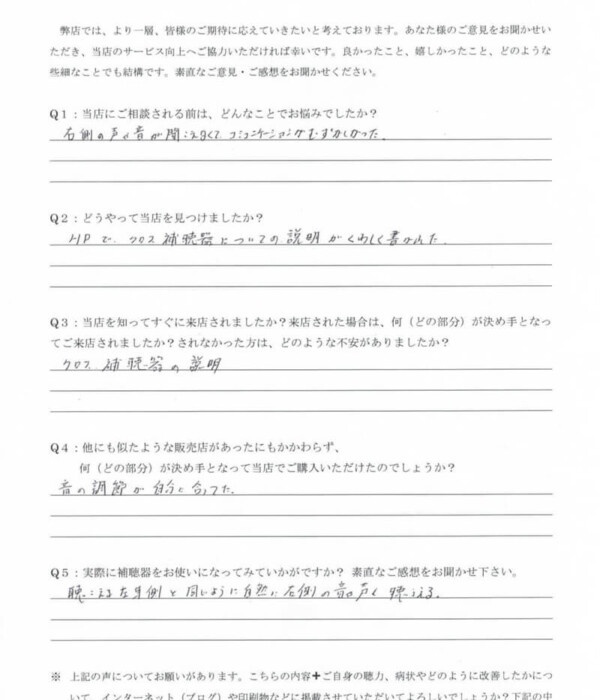 弊店では、より一層、皆様のご期待に応えていきたいと考えております。あなた様のご意見をお聞かせい
ただき、当店のサービス向上へご協力いただければ幸いです。良かったこと、嬉しかったこと、どのような
些細なことでも結構です。素直なご意見・ご感想をお聞かせください。
Q1：当店にご相談される前は、どんなことでお悩みでしたか？
右側の声や音が聞こえなくて コミュニケーションがむずかしかった.
Q2：どうやって当店を見つけましたか？
HPで.クロス補聴器についての説明がくわしく書かれた.
Q3：当店を知ってすぐに来店されましたか？来店された場合は、何（どの部分）が決め手となっ
てご来店されましたか？されなかった方は、どのような不安がありましたか？
クロス補聴器の説明
Q4：他にも似たような販売店があったにもかかわらず、
何（どの部分）が決め手となって当店でご購入いただけたのでしょうか？
音の調節が自分に合ってた.
Q5：実際に補聴器をお使いになってみていかがですか？ 素直なご感想をお聞かせ下さい。
聴こえる左耳側と同じように自然に右側の音や声も聴こえる.
※ 上記の声についてお願いがあります。こちらの内容＋ご自身の聴力、病状やどのように改善したかにつ
いて、インターネット（ブログ）や印刷物などに掲載させていただいてよろしいでしょうか？下記の中